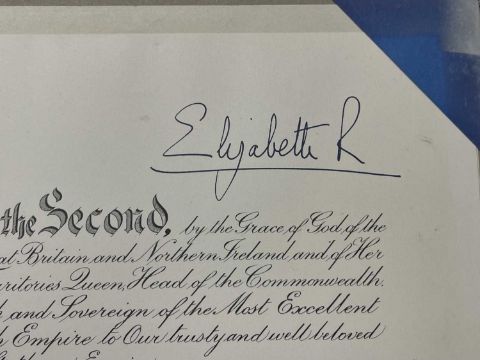 Elizabeth R
the Second, by the Grace of God, of the
Britain and Northern Ireland and of Her
Queen, Head of the Commonwealth.
and Sovereign of the Most Excellent
Empire to Our trusty and well beloved